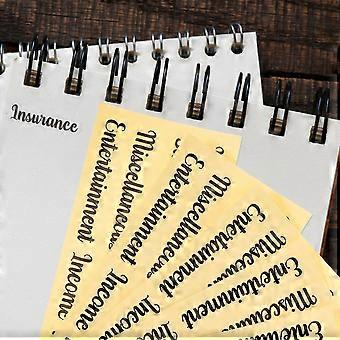 Insurance
Entertainment Income
Miscellaneous Income
Entertainment
Miscellaneous Income
Entertainment
Miscellaneous
Entertainment
Miscellaneous